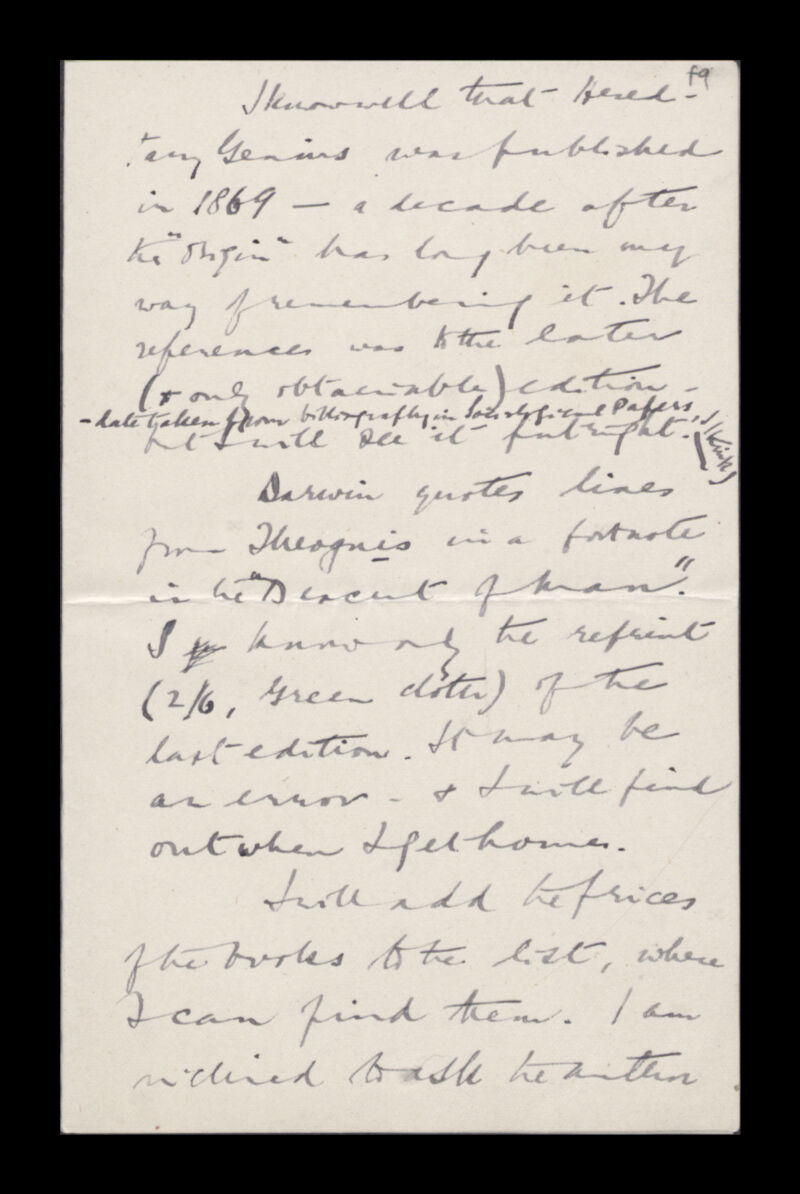 f9
I know well that Hered-
itary Genius was published
in 1869 — a decade after
the "Origin" has long been my
way of remembering it. The
references was to the later
(& only obtainable) edition -
- date taken from bibliography in Sociological Papers,
but I will see it put right.
Darwin quotes lines
from Theognis in a footnote
in the "Descent of Man".
I know only the reprint
(2/6, Green cloth) of the
last edition. It may be
an error - & I will find
out when I get home.
I will add the prices
of the books to the list, where
I can find them. I am
inclined to ask the author